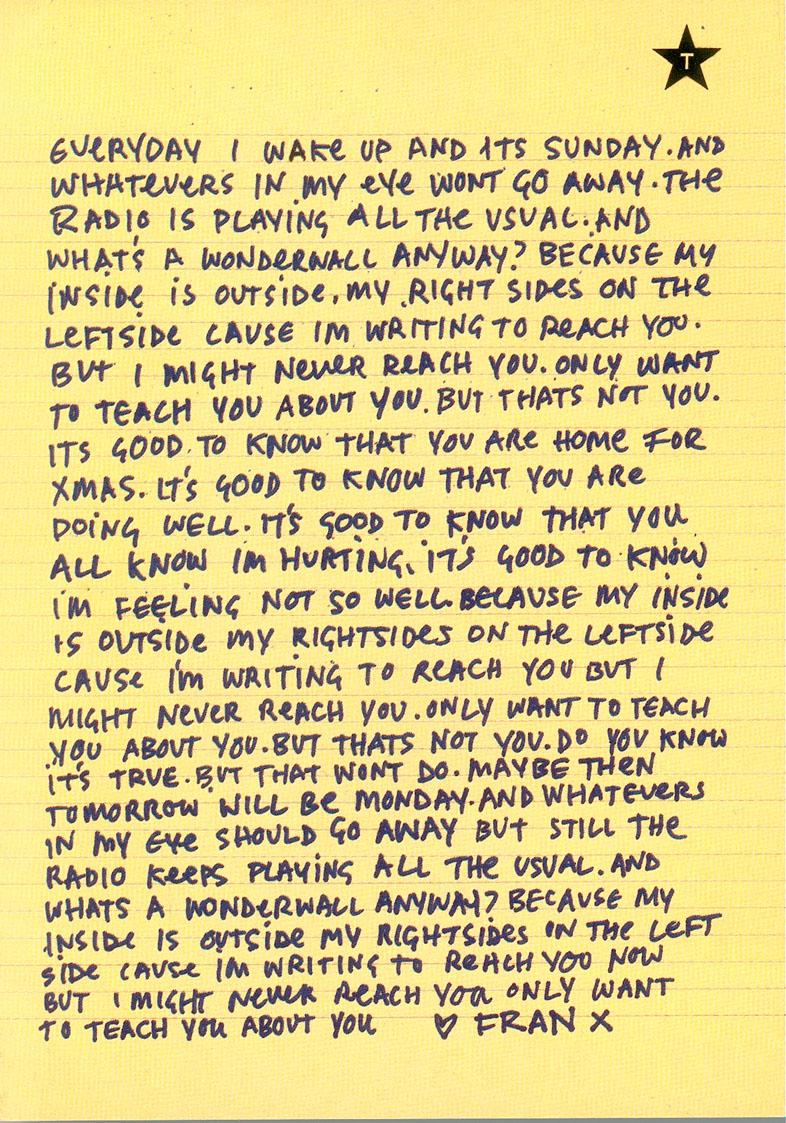 T
EVERYDAY I WAKE UP AND ITS SUNDAY. AND
WHATEVERS IN MY EYE WONT GO AWAY. THE
RADIO IS PLAYING ALL THE USUAL. AND
WHAT'S A WONDERWALL ANYWAY? BECAUSE MY
INSIDE IS OUTSIDE. MY RIGHT SIDES ON THE
LEFTSIDE CAUSE IM WRITING TO REACH YOU.
BUT I MIGHT NEVER REACH YOU. ONLY WANT
TO TEACH YOU ABOUT YOU. BUT THATS NOT YOU.
ITS GOOD TO KNOW THAT YOU ARE HOME FOR
XMAS. IT'S GOOD TO KNOW THAT YOU ARE
DOING WELL. IT'S GOOD TO KNOW THAT YOU
ALL KNOW IM HURTING. IT'S GOOD TO KNOW
I'M FEELING NOT SO WELL. BECAUSE MY INSIDE
IS OUTSIDE MY RIGHTSIDES ON THE LEFTSIDE
CAUSE I'M WRITING TO REACH YOU BUT I
MIGHT NEVER REACH YOU. ONLY WANT TO TEACH
YOU ABOUT YOU. BUT THATS NOT YOU. DO YOU KNOW
IT'S TRUE. BUT THAT WONT DO. MAYBE THEN
TOMORROW WILL BE MONDAY. AND WHATEVERS
IN MY EYE SHOULD GO AWAY BUT STILL THE
RADIO KEEPS PLAYING ALL THE USUAL. AND
WHATS A WONDERWALL ANYWAY? BECAUSE MY
INSIDE IS OUTSIDE MY RIGHTSIDES ON THE LEFT
SIDE CAUSE IM WRITING TO REACH YOU NOW
BUT I MIGHT NEVER REACH YOU ONLY WANT
TO TEACH YOU ABOUT YOU ♡ FRAN X